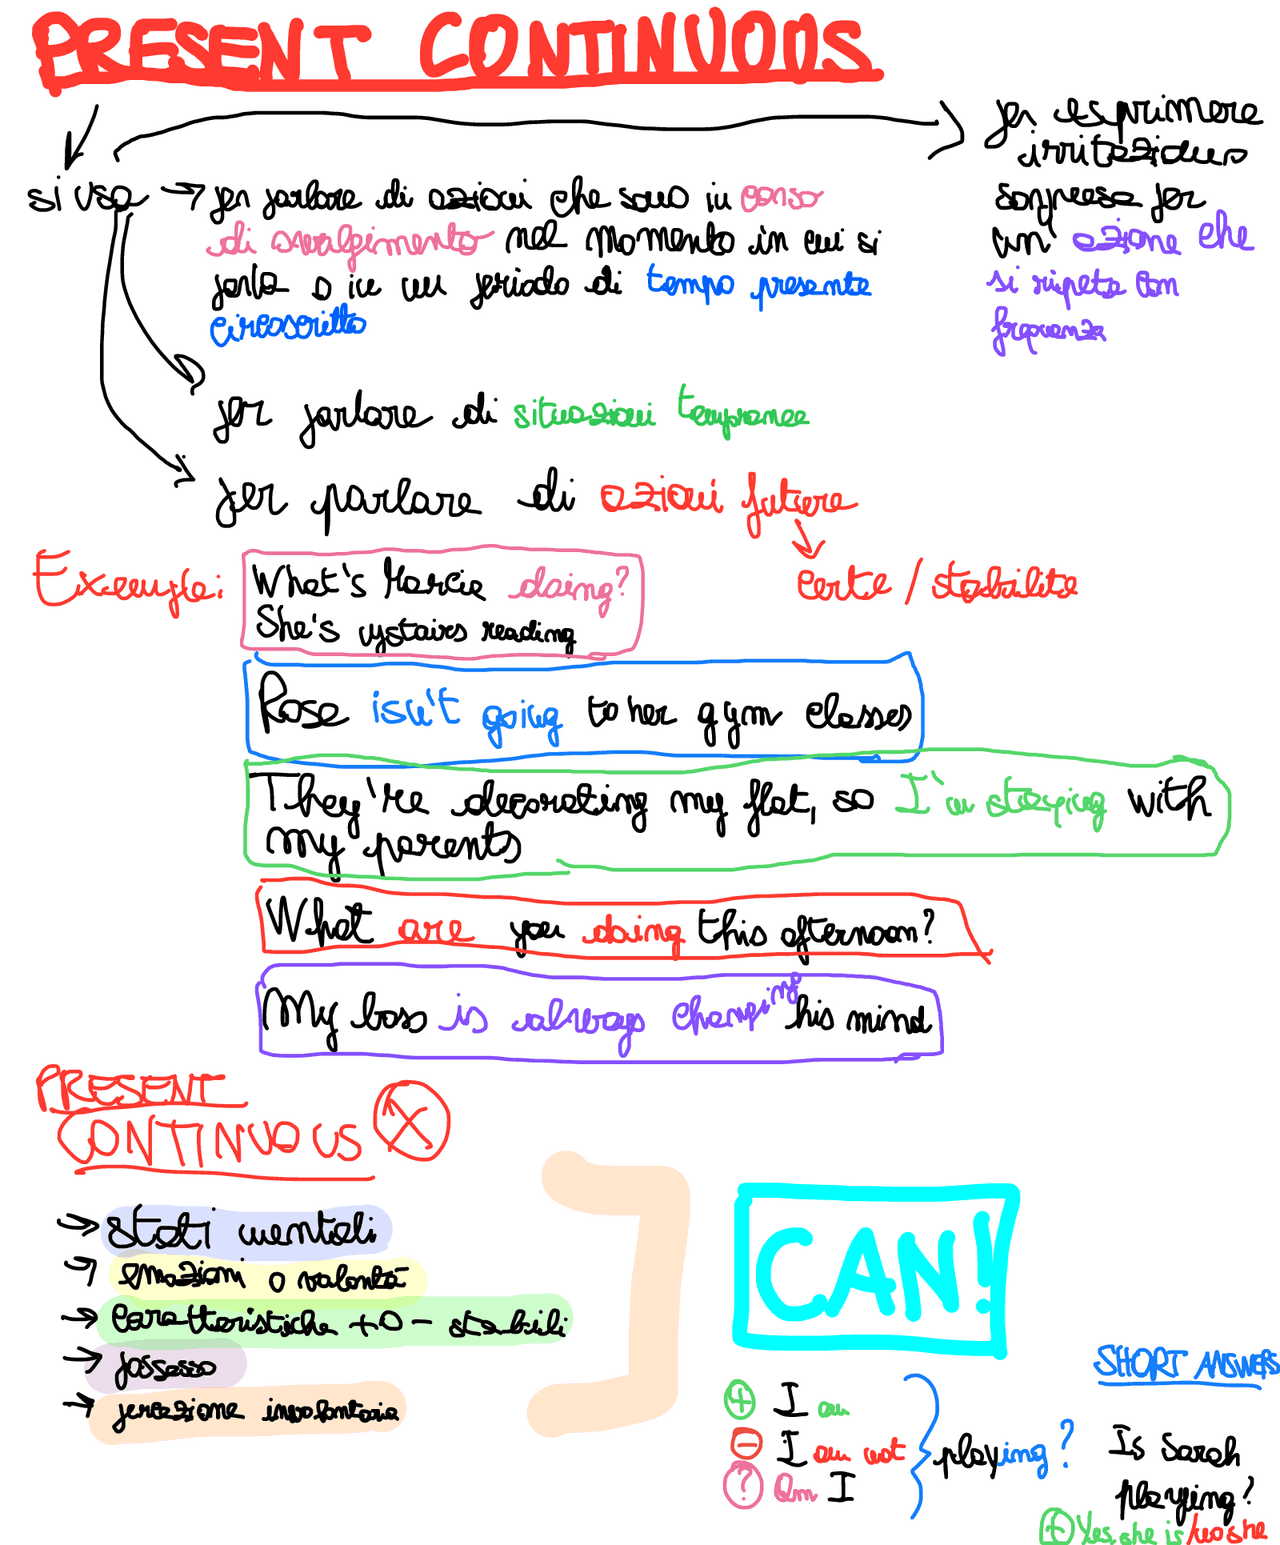 PRESENT CONTINUOUS
si usa → per parlare di azioni che sono in corso
di svolgimento nel momento in cui si
parla o in un periodo di tempo presente
circoscritto
per esprimere
irritazione
sorpresa per
un azione che
si ripete con
frequenza
per parlare di situazioni temporanee
per parlare di azioni future
certe / stabilite
Exemple:
What's Marcie doing?
She's upstairs reading
Rose isn't going to her gym classes
They're decorating my flat, so I'm staying with
my parents
What are you doing this afternoon?
My boss is always changing his mind
PRESENT
CONTINUOUS X
→ stati mentali
→ emozioni o volontà
→ caratteristiche + o - stabili
→ possesso
→ percezione involontaria
CAN!
+ I am
- I am not
? am I
playing?
SHORT ANSWERS
Is Sarah
playing?
+ Yes, she is/no she